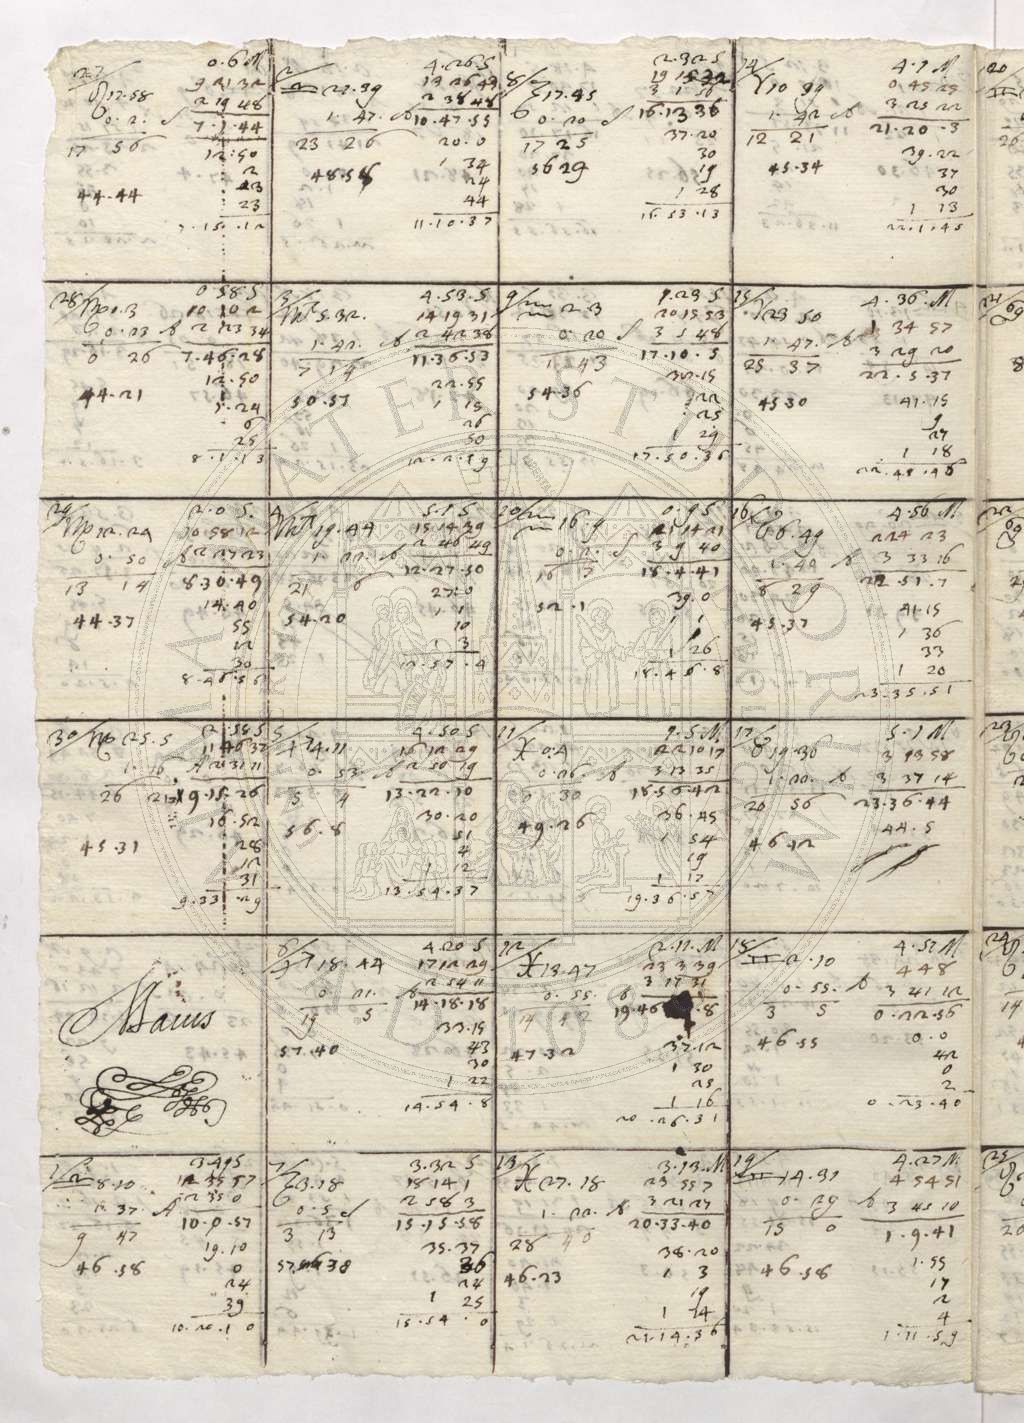 27
0.6 M
♌ 17.58
9 21 32
2 19 48
0. 2. ♂
7.1.44
17 56
12.50
2
44.44
23
23
7.15.12
28
0.58 S
♍ 0.3
10 10 2
0.23 ♄
2 23 34
0 26
7.46.28
12.50
44.21
1.24
6
25
8.1.13
29
2.0 S.
♍ 12.24
0. 50
2 27 23
13 14
8.30.49
14.40
44.37
55
12
30
8.46.56
30
♍ 25.5
2.58 S
1.16
2 31 11
26 21
9.15.26
16.52
45.31
28
12
31
9.33 29
Maius
1
3.49 S
♎ 8.10
2 35 0
1.37.
10.0.57
9 47
19.10
46.58
0
24
39
10.20.10
2
4.26 S
♎ 21.39
2 38 48
1.47.
10.47.55
23 26
20.0
1 34
48.58
24
44
11.10.37
3
4.53.S
♏ 5.32.
14 19 31
1.42. ♄
2 42 38
7 14
11.36.53
22.55
50.57
1 15
26
50
12.2.19
4
5.1 S
♏ 19.44
15 14 39
1. 22. ♄
2 46 49
21 6
12.27.50
27.0
1 1
54.20
10
1 3
12.57.4
5
4.50 S
♐ 4.11
16 12 29
0. 53. ♄
2 50 19
5 4
13.22.10
30.20
51
56.8
4
1 2
13.54.37
6
4.20 S
♐ 18.44
17 12 29
0. 21. ♄
2 54 11
19 5
14.18.18
33.15
57.40
43
30
1 22
14.54.8
7
3.32 S
♑ 3.18
18 14 1
0.5 ♂
2 58 3
3 13
15.15.58
35.37
36
24
1 25
15.54.0
8
2.32 S
♑ 17.45
3 1 56
0.20 ♂
16.13 36
17 25
37.20
30
56 29
19
1 28
16.53.13
9
1.23 S
♒ 2.3
20 15 53
0.20 ♂
3 5 48
1 43
17.10.5
38.15
54.36
22
25
1 29
17.50.36
10
0.9 S
♒ 16.9
21 14 21
0.2. ♂
3 9 40
16 7
18.4.41
39.0
52.1
1 1
1 26
18.45.8
11
1.5 M.
♓ 0.4
22 10 17
0.26. ♄
3 13 35
0 30
18.56.42
36.45
49.26
1 54
19
1 17
19.36.57
12
2.11.M
♓ 13.47
23 3 39
0. 55. ♄
3 17 31
14 42
37.12
47.32
1 30
23
1 16
20.26.31
13
3.13.M
♓ 27.18
23 55 7
1. 22. ♄
3 21 27
28 40
20.33.40
38.20
46.23
1 3
19
1 14
21.14.36
14
4.7 M
♈ 10 39
0 45 29
1.42 ♄
3 25 22
12 21
21.20.3
39.22
45.34
37
30
1 13
22.1.45
15
4.36.M
♈ 23 50
1 34 57
1.47. ♄
3 29 20
25.37
22.5.37
41.15
45 30
9
27
1 18
22.48.46
16
4.56 M.
♉ 6.49
2 24 23
1.49 ♄
3 33 16
8 29
22 51.7
41.15
45.37
1 36
33
1 20
23.35.51
17
5.1 M
♉ 19.36
1.20. ♄
3 37 14
20 56
23.36.44
44.5
46.12
18
4.51 M.
♊ 2.10
4 4 8
0. 55. ♄
3 41 12
3 5
0.22.56
0.0
46.55
42
0
2
0.23.40
19
4.27 M.
♊ 14.31
4 54 51
0. 29 ♄
3 45 10
15 0
1.9.41
1.55
46.58
17
2
4
1.11.59
20
21
22
23
24
25